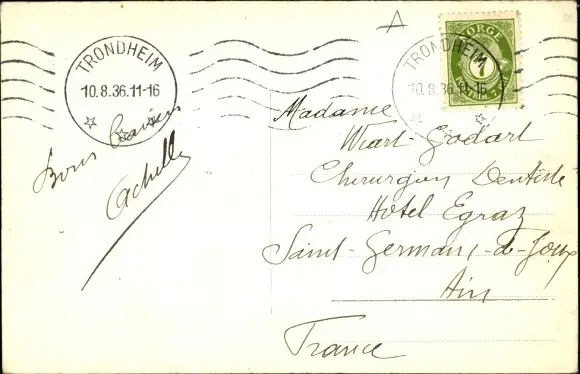 TRONDHEIM
10.8.36.11-16
NORGE
7
TRONDHEIM
10.8.36.11-16
A
Bons baisers
Achille
Madame
Wiart-Godart
Chirurgien Dentiste
Hotel Egraz
Saint-Germain-de-Joux
Ain
France